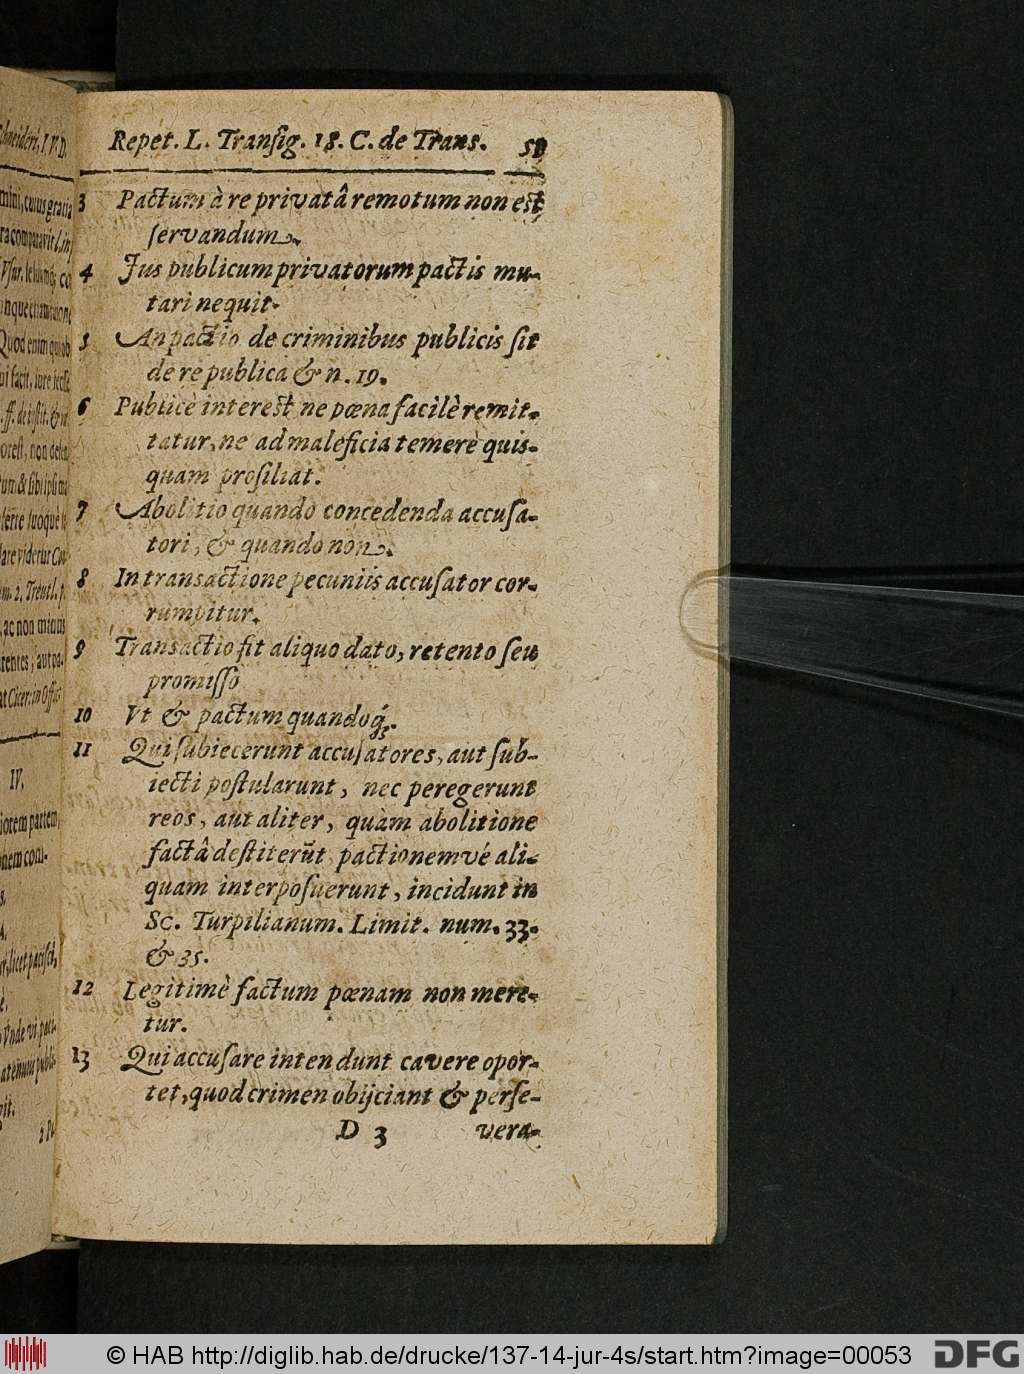 Repet. L. Transig. 18. C. de Trans.
3 Pactum à re privatâ remotum non est
servandum.
4 Jus publicum privatorum pactis mu-
tari nequit.
5 An pactio de criminibus publicis sit
de re publica & n. 19.
6 Publicè interest ne pœna facilè remit-
tatur, ne ad maleficia temerè quis-
quam prosiliat.
7 Abolitio quando concedenda accusa-
tori, & quando non.
8 In transactione pecuniis accusator cor-
rumpitur.
9 Transactio fit aliquo dato, retento seu
promisso
10 Vt & pactum quandoq́;.
11 Qui subiecerunt accusatores, aut sub-
iecti postularunt, nec peregerunt
reos, aut aliter, quàm abolitione
factâ destiterũt pactionemvé ali-
quam interposuerunt, incidunt in
Sc. Turpilianum. Limit. num. 33.
& 35.
12 Legitimè factum pœnam non mere-
tur.
13 Qui accusare intendunt cavere opor-
tet, quod crimen obijciant & perse-
D 3 vera-
© HAB http://diglib.hab.de/drucke/137-14-jur-4s/start.htm?image=00053
DFG